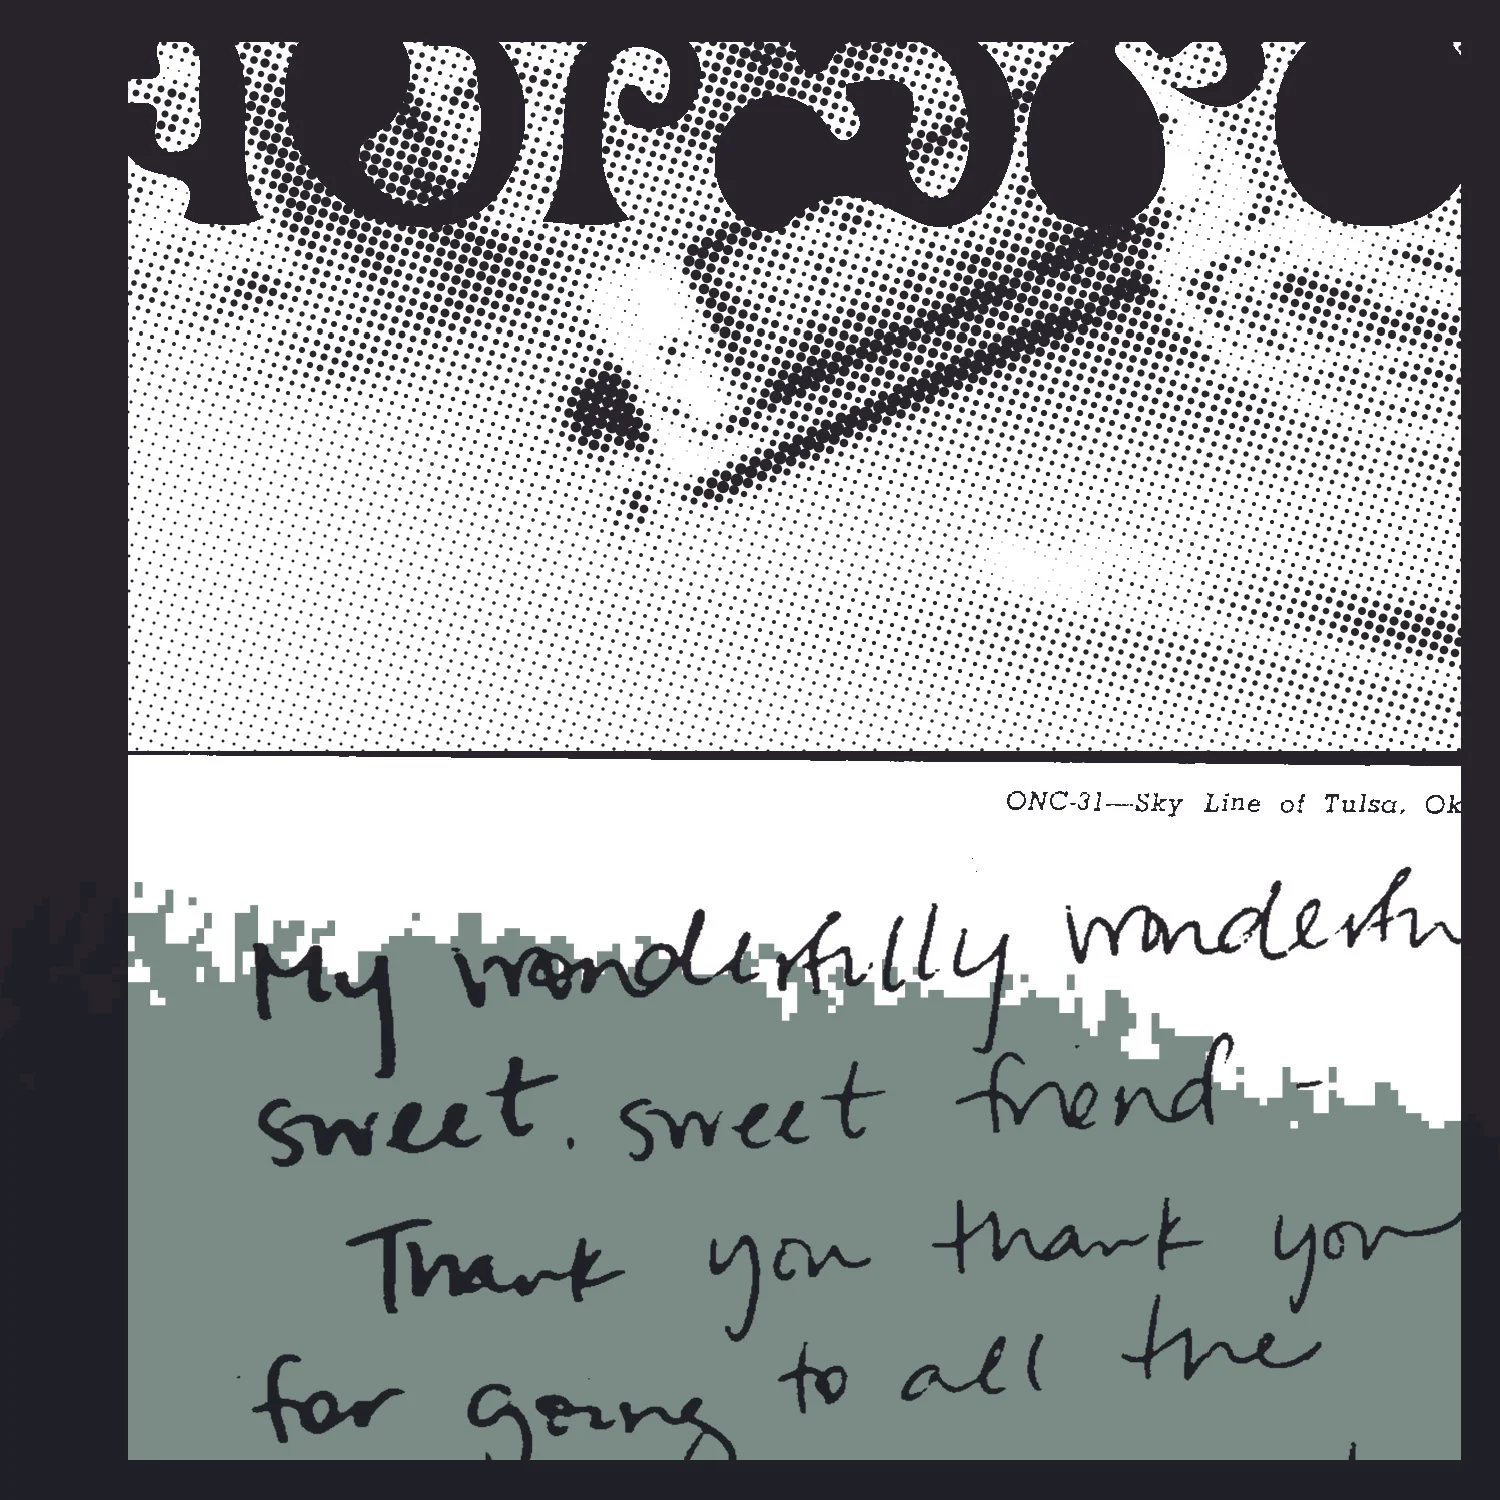 ONC-31—Sky Line of Tulsa, Ok
My wonderfully wonderfu
sweet. sweet friend -
Thank you thank you
for going to all the